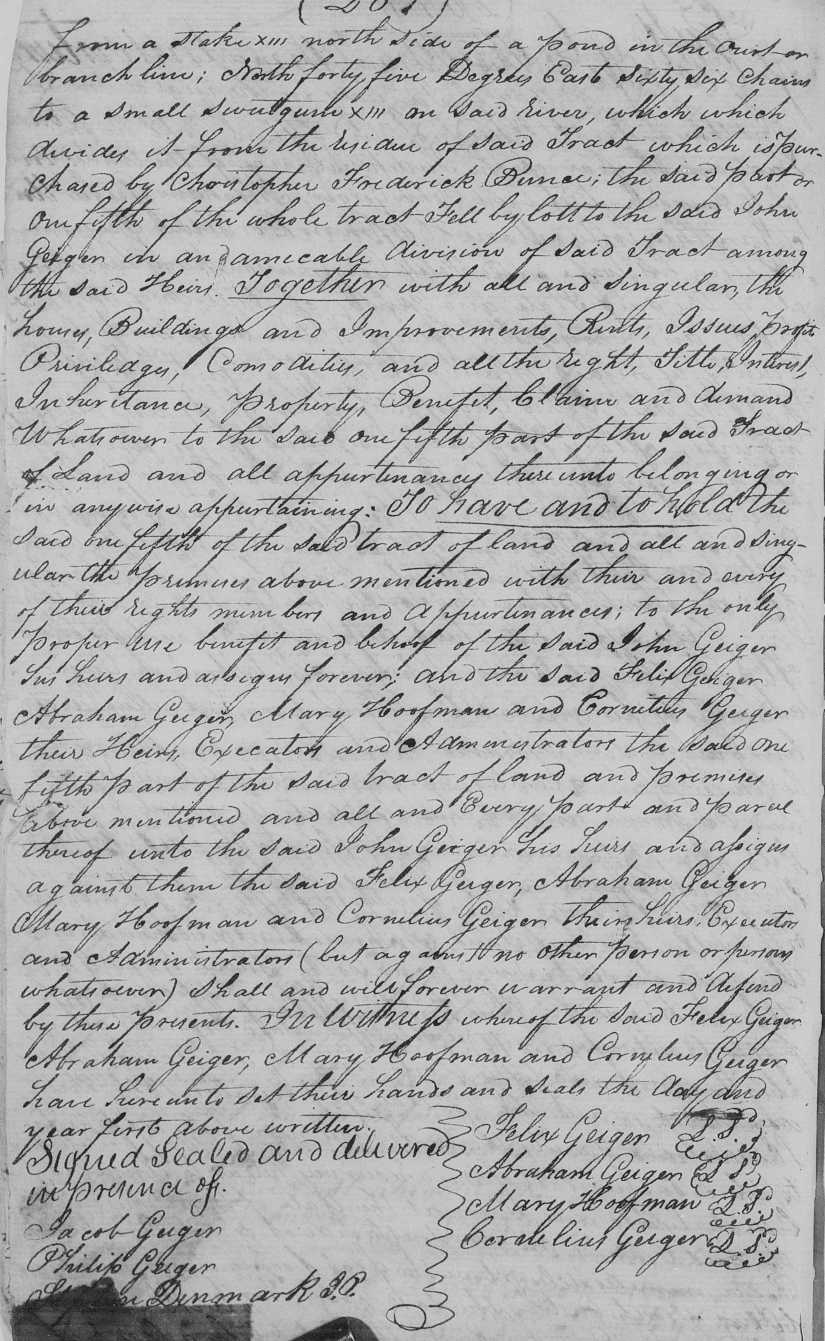 from a stake XIII north side of a pond in the
branch line; North forty five Degrees East Sixty six Chains
to a small sweetgum XIII on said River, which which
divides it from the residue of said Tract which is pur-
chased by Christopher Frederick Bunce; the said part or
one fifth of the whole tract Fell by lott to the said John
Geiger in an amecable division of said Tract among
the said Heirs. Together with all and Singular, the
houses, Buildings and Improvements, Rents, Issues, Profits
Priviledges, Comodities, and all the right, Title, Interest,
Inheritance, property, Benefit, Claim and demand
Whatsoever to the said one fifth part of the said Tract
of Land and all appurtenancy thereunto belonging or
in anywise appurtaining: To have and to hold the
said one fifth of the said tract of land and all and sing-
ular the premises above mentioned with their and every
of their rights members and Appurtinances; to the only
Proper use benefit and behoof of the said John Geiger
his heirs and assigns forever; and the said Felix Geiger
Abraham Geiger, Mary Hoofman and Cornelius Geiger
their Heirs, Execators and Administrators the said one
fifth part of the said tract of land and premises
above mentioned and all and Every part and parcel
thereof unto the said John Geiger his heirs and assigns
against them the said Felix Geiger, Abraham Geiger
Mary Hoofman and Cornelius Geiger their heirs, Executors
and Administrators (but against no other person or persons
whatsoever) shall and will forever warrant and defend
by these presents. In Witness whereof the said Felix Geiger
Abraham Geiger, Mary Hoofman and Cornelius Geiger
have hereunto set their hands and seals the day and
year first above written.
Signed Sealed and delivered
in presence of.
Jacob Geiger
Philip Geiger
Denmark J.P.
Felix Geiger L.S.
Abraham Geiger L.S.
Mary Hoofman L.S.
Cornelius Geiger L.S.